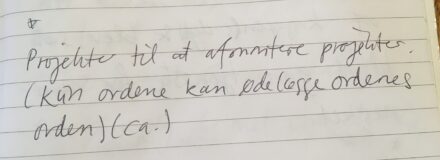 Projekter til at afmontere projekter.
(Kun ordene kan ødelægge ordenes
orden) (ca.)